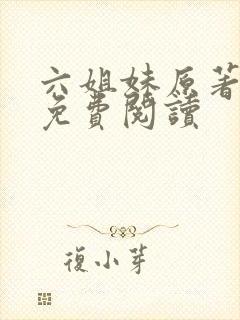 六姐妹原著
免費閱讀
復小芽